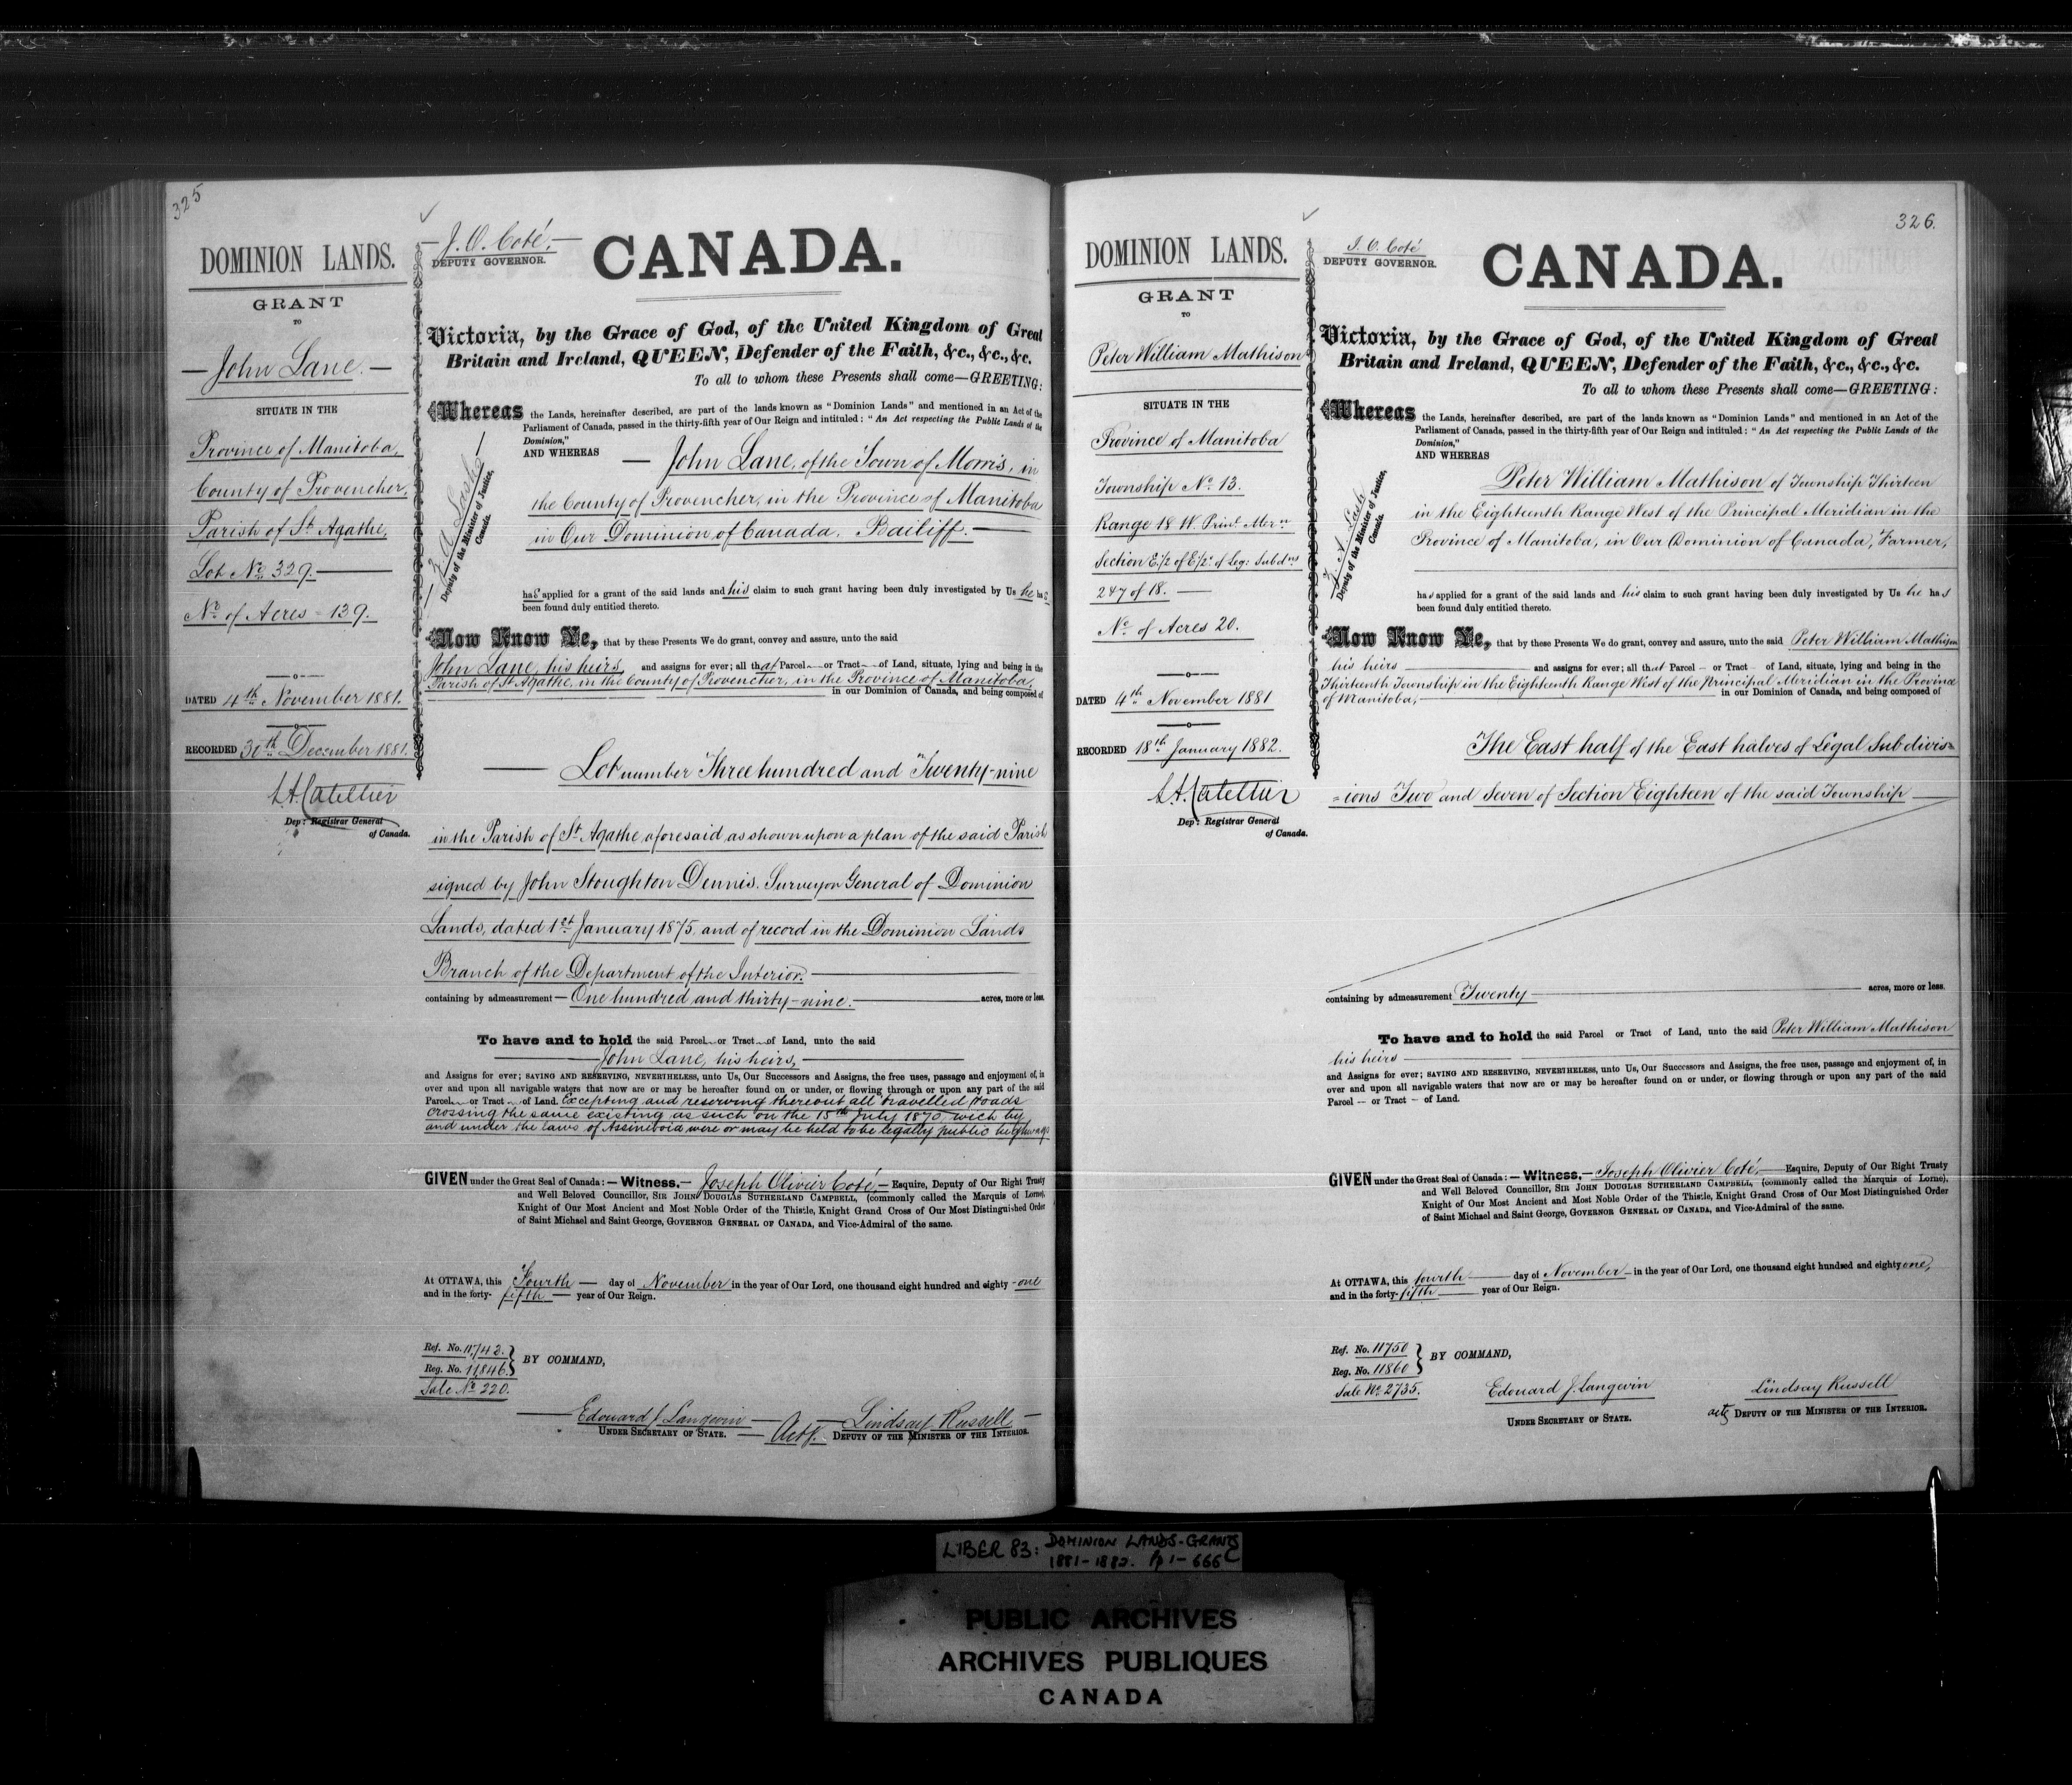 325
DOMINION LANDS.
GRANT
TO
John Lane.
SITUATE IN THE
Province of Manitoba,
County of Provencher,
Parish of St. Agathe,
Lot No. 329.
No. of Acres = 139.
DATED 4th November 1881.
RECORDED 30th December 1881.
Dep: Registrar General
of Canada.
J. O. Coté.
DEPUTY GOVERNOR.
CANADA.
Victoria, by the Grace of God, of the United Kingdom of Great
Britain and Ireland, QUEEN, Defender of the Faith, &c., &c., &c.
To all to whom these Presents shall come—GREETING:
Whereas the Lands, hereinafter described, are part of the lands known as "Dominion Lands" and mentioned in an Act of the
Parliament of Canada, passed in the thirty-fifth year of Our Reign and intituled: "An Act respecting the Public Lands of the
Dominion,"
AND WHEREAS — John Lane, of the Town of Morris, in
the County of Provencher, in the Province of Manitoba
in Our Dominion of Canada. Bailiff.
Z. A. Lash
Deputy of the Minister of Justice,
Canada.
has applied for a grant of the said lands and his claim to such grant having been duly investigated by Us he has
been found duly entitled thereto.
Now Know Ye, that by these Presents We do grant, convey and assure, unto the said
John Lane, his heirs, and assigns for ever; all that Parcel or Tract of Land, situate, lying and being in the
Parish of St. Agathe, in the County of Provencher, in the Province of Manitoba,
in our Dominion of Canada, and being composed of
Lot number Three hundred and Twenty-nine
in the Parish of St. Agathe aforesaid as shown upon a plan of the said Parish
signed by John Stoughton Dennis. Surveyor General of Dominion
Lands, dated 1st January 1875, and of record in the Dominion Lands
Branch of the Department of the Interior.
containing by admeasurement — One hundred and thirty-nine. acres, more or less.
To have and to hold the said Parcel or Tract of Land, unto the said
John Lane, his heirs,
and Assigns for ever; SAVING AND RESERVING, NEVERTHELESS, unto Us, Our Successors and Assigns, the free uses, passage and enjoyment of, in
over and upon all navigable waters that now are or may be hereafter found on or under, or flowing through or upon any part of the said
Parcel or Tract of Land. Excepting and reserving thereout all travelled roads
crossing the same existing as such on the 15th July 1870, wich by
and under the laws of Assiniboia were or may be held to be legally public highways
GIVEN under the Great Seal of Canada:—Witness.— Joseph Olivier Coté,— Esquire, Deputy of Our Right Trusty
and Well Beloved Councillor, SIR JOHN DOUGLAS SUTHERLAND CAMPBELL, (commonly called the Marquis of Lorne),
Knight of Our Most Ancient and Most Noble Order of the Thistle, Knight Grand Cross of Our Most Distinguished Order
of Saint Michael and Saint George, GOVERNOR GENERAL OF CANADA, and Vice-Admiral of the same.
At OTTAWA, this Fourth — day of November in the year of Our Lord, one thousand eight hundred and eighty-one
and in the forty-fifth — year of Our Reign.
Ref. No. 11,742.
Reg. No. 11,846.
Sale No. 220.
BY COMMAND,
Edouard J. Langevin — Actg. — Lindsay Russell —
UNDER SECRETARY OF STATE. DEPUTY OF THE MINISTER OF THE INTERIOR.
326.
DOMINION LANDS.
GRANT
TO
Peter William Mathison
SITUATE IN THE
Province of Manitoba
Township No. 13.
Range 18 W. Prinl. Mern.
Section E.1/2 of E1/2s of Leg: Subdns
2 & 7 of 18.
No. of Acres 20.
DATED 4th November 1881
RECORDED 18th January 1882.
Dep: Registrar General
of Canada.
J. O. Coté
DEPUTY GOVERNOR.
CANADA.
Victoria, by the Grace of God, of the United Kingdom of Great
Britain and Ireland, QUEEN, Defender of the Faith, &c., &c., &c.
To all to whom these Presents shall come—GREETING:
Whereas the Lands, hereinafter described, are part of the lands known as "Dominion Lands" and mentioned in an Act of the
Parliament of Canada, passed in the thirty-fifth year of Our Reign and intituled: "An Act respecting the Public Lands of the
Dominion,"
AND WHEREAS
Peter William Mathison of Township Thirteen
in the Eighteenth Range West of the Principal Meridian in the
Province of Manitoba, in Our Dominion of Canada, Farmer,
Z. A. Lash
Deputy of the Minister of Justice,
Canada.
has applied for a grant of the said lands and his claim to such grant having been duly investigated by Us he has
been found duly entitled thereto.
Now Know Ye, that by these Presents We do grant, convey and assure, unto the said Peter William Mathison
his heirs and assigns for ever; all that Parcel or Tract of Land, situate, lying and being in the
Thirteenth Township in the Eighteenth Range West of the Principal Meridian in the Province
of Manitoba, in our Dominion of Canada, and being composed of
The East half of the East halves of Legal Subdivis=
=ions Two and Seven of Section Eighteen of the said Township
containing by admeasurement Twenty acres, more or less.
To have and to hold the said Parcel or Tract of Land, unto the said Peter William Mathison
his heirs
and Assigns for ever; SAVING AND RESERVING, NEVERTHELESS, unto Us, Our Successors and Assigns, the free uses, passage and enjoyment of, in
over and upon all navigable waters that now are or may be hereafter found on or under, or flowing through or upon any part of the said
Parcel — or Tract — of Land.
GIVEN under the Great Seal of Canada:—Witness.— Joseph Olivier Coté,— Esquire, Deputy of Our Right Trusty
and Well Beloved Councillor, SIR JOHN DOUGLAS SUTHERLAND CAMPBELL, (commonly called the Marquis of Lorne),
Knight of Our Most Ancient and Most Noble Order of the Thistle, Knight Grand Cross of Our Most Distinguished Order
of Saint Michael and Saint George, GOVERNOR GENERAL OF CANADA, and Vice-Admiral of the same.
At OTTAWA, this fourth — day of November — in the year of Our Lord, one thousand eight hundred and eighty one,
and in the forty-fifth — year of Our Reign.
Ref. No. 11750
Reg. No. 11860
Sale No. 2735.
BY COMMAND,
Edouard J. Langevin Lindsay Russell
UNDER SECRETARY OF STATE. actg DEPUTY OF THE MINISTER OF THE INTERIOR.
LIBER 83: DOMINION LANDS-GRANTS
1881-1882. Pp 1-666
PUBLIC ARCHIVES
ARCHIVES PUBLIQUES
CANADA